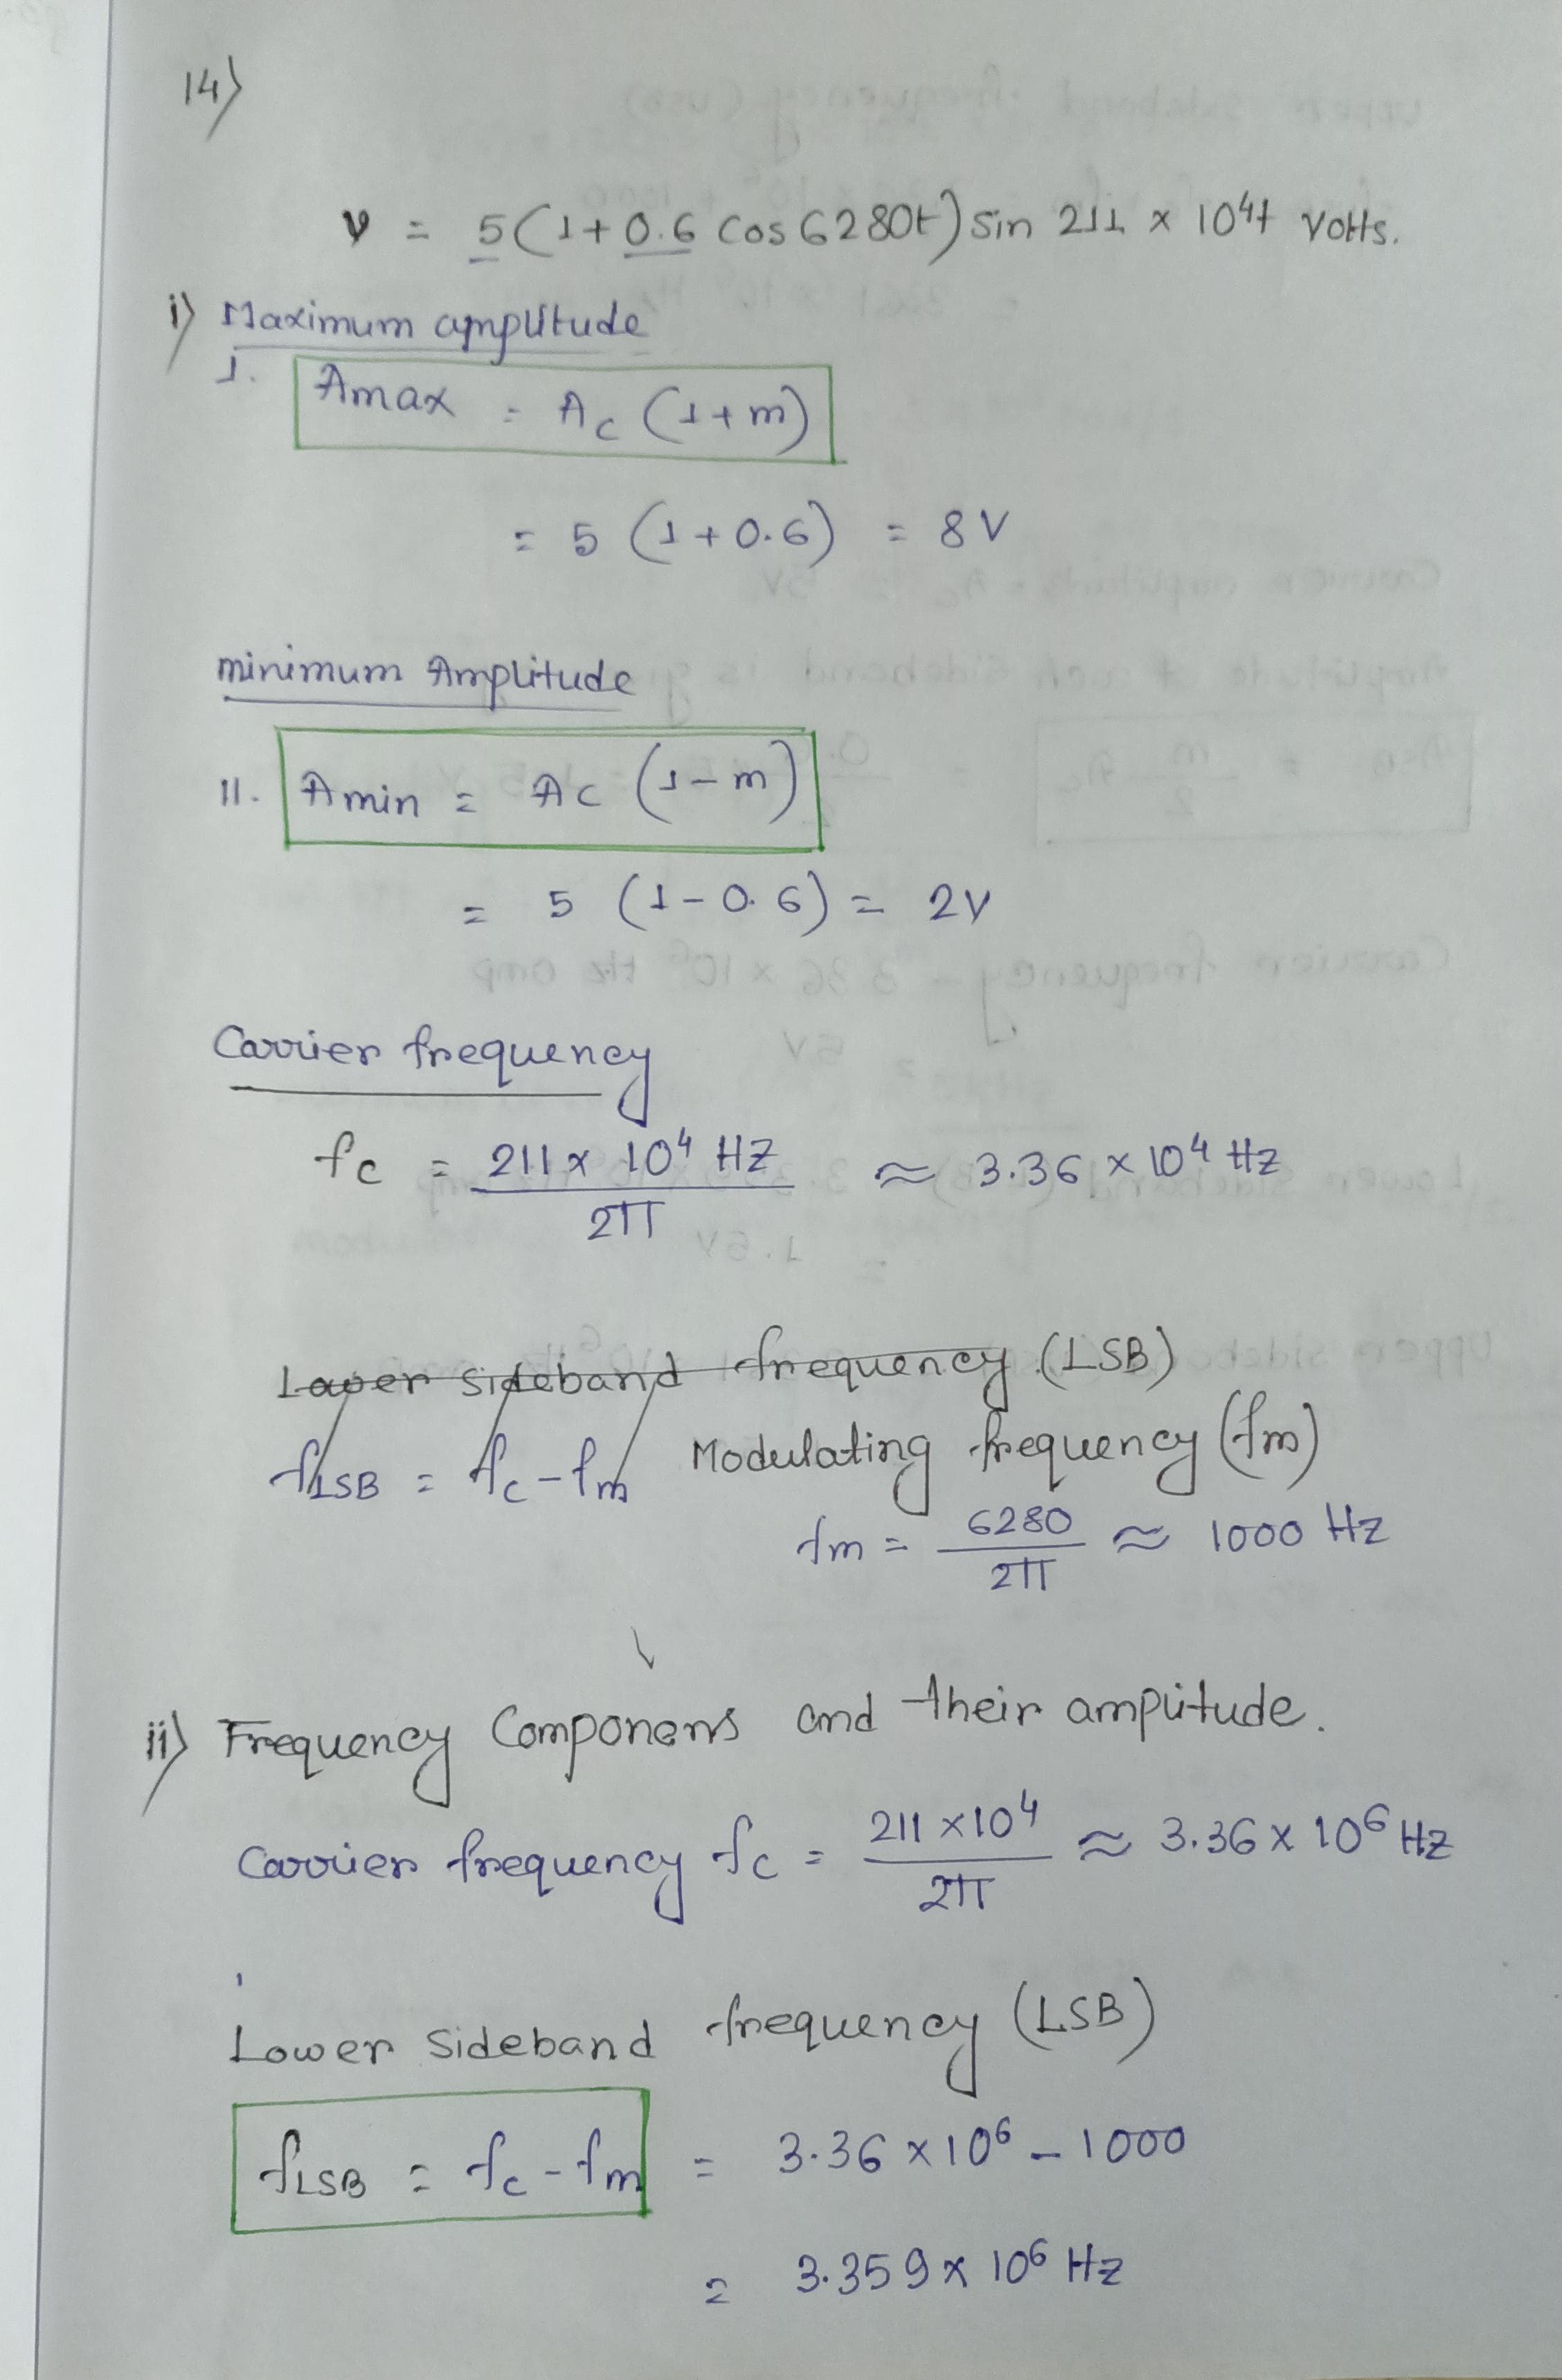 14)
v = 5(1+0.6 cos 6280t) sin 211 x 10⁴t Volts.
i) Maximum amplitude
I. Amax = Ac (1+m)
= 5 (1+0.6) = 8V
minimum Amplitude
II. Amin = Ac (1-m)
= 5 (1-0.6) = 2V
Carrier frequency
fc = 211 x 10⁴ Hz / 2π ≈ 3.36 x 10⁴ Hz
Lower sideband frequency (LSB)
fLSB = fc - fm Modulating frequency (fm)
fm = 6280 / 2π ≈ 1000 Hz
ii) Frequency Componens and their amplitude.
Carrier frequency fc = 211 x 10⁴ / 2π ≈ 3.36 x 10⁶ Hz
Lower Sideband frequency (LSB)
fLSB = fc - fm = 3.36 x 10⁶ - 1000
= 3.359 x 10⁶ Hz